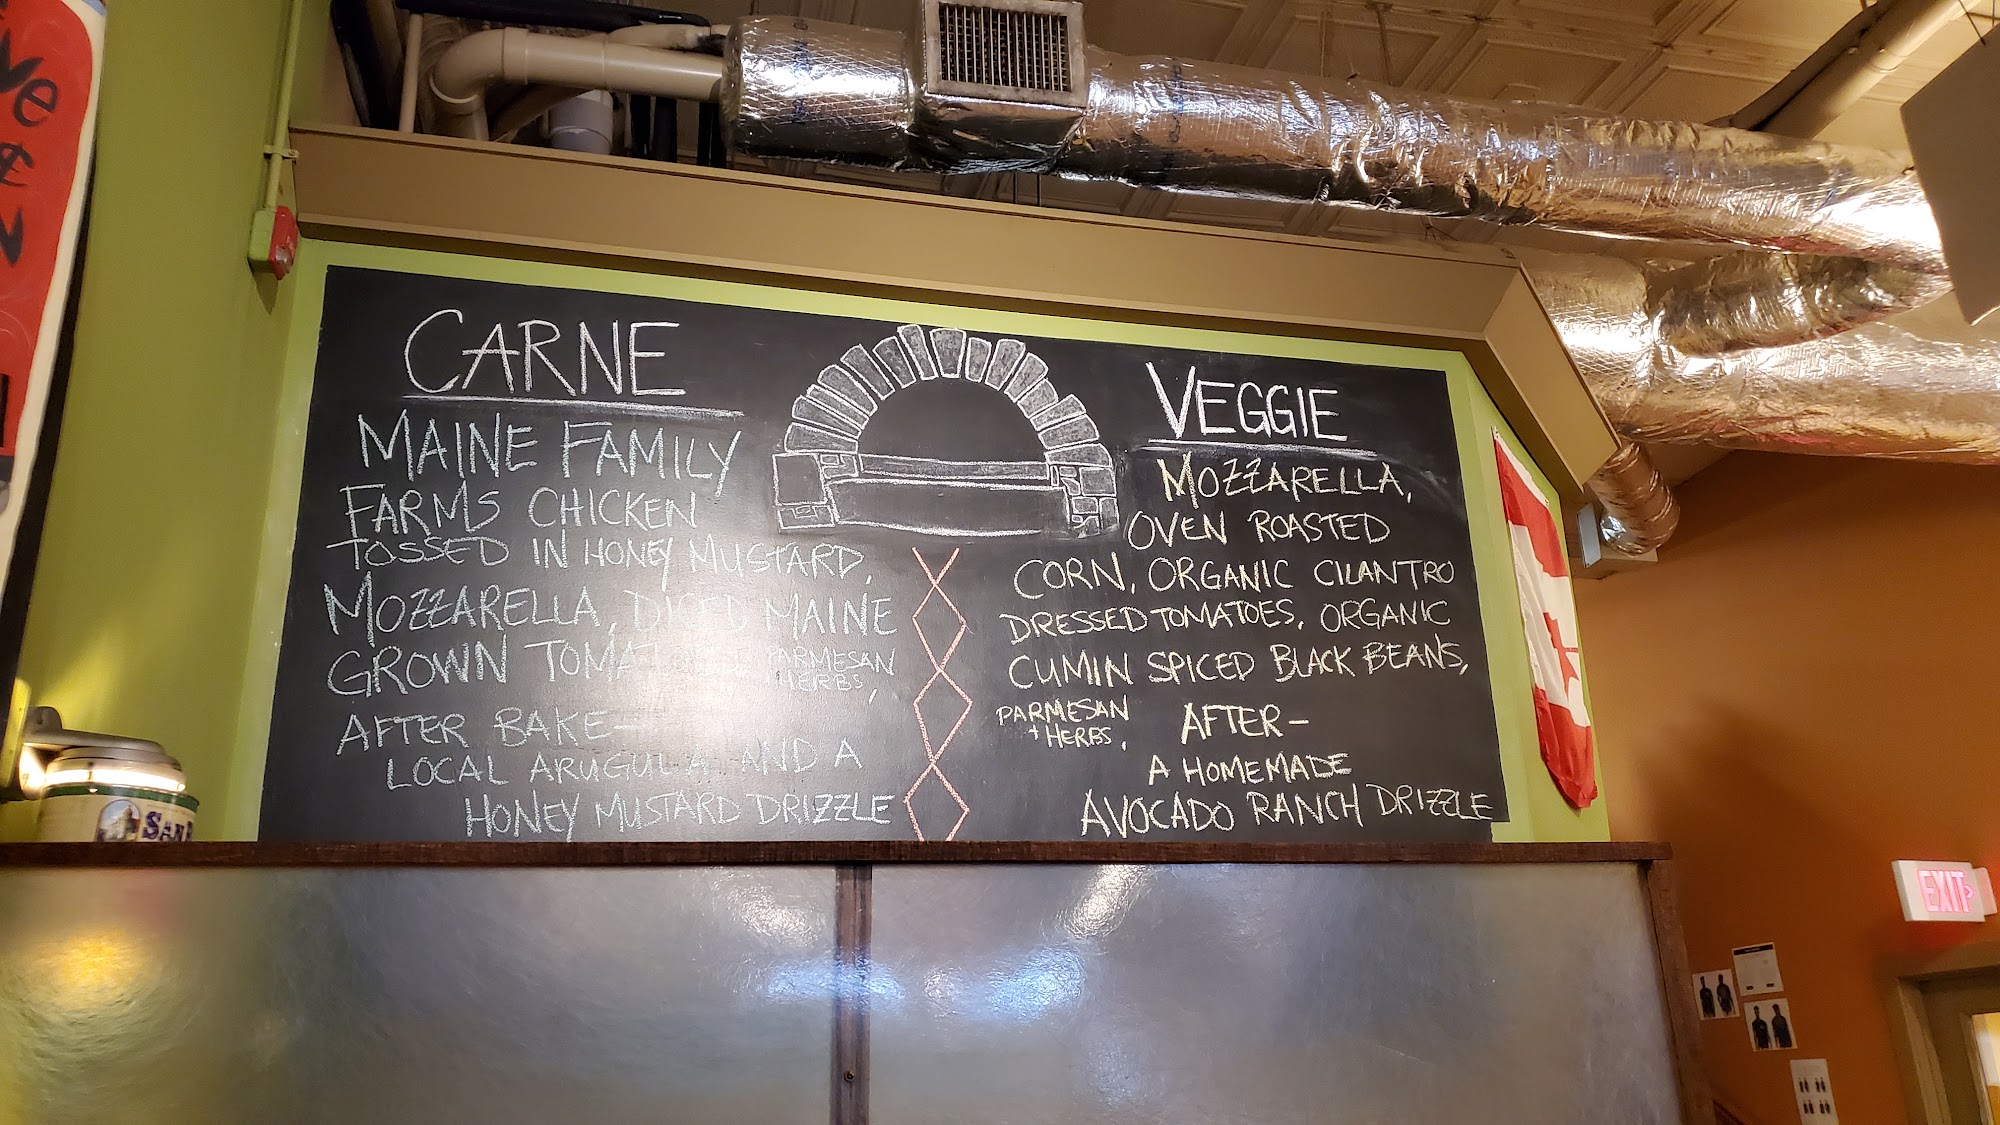 CARNE
MAINE FAMILY
FARMS CHICKEN
TOSSED IN HONEY MUSTARD,
MOZZARELLA, DICED MAINE
GROWN PARMESAN
HERBS,
AFTER BAKE-
LOCAL ARUGULA AND A
HONEY MUSTARD DRIZZLE
VEGGIE
MOZZARELLA,
OVEN ROASTED
CORN, ORGANIC CILANTRO
DRESSED TOMATOES, ORGANIC
CUMIN SPICED BLACK BEANS,
PARMESAN
+ HERBS,
AFTER-
A HOMEMADE
AVOCADO RANCH DRIZZLE
SAN
EXIT